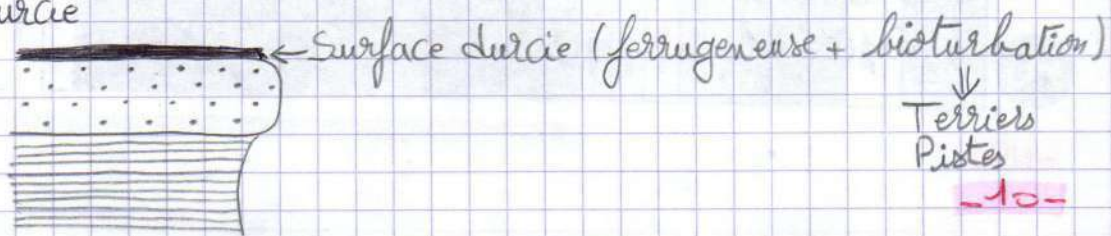 urcie
← Surface durcie (ferrugeneuse + bioturbation)
⇓
Terriers
Pistes
-10-